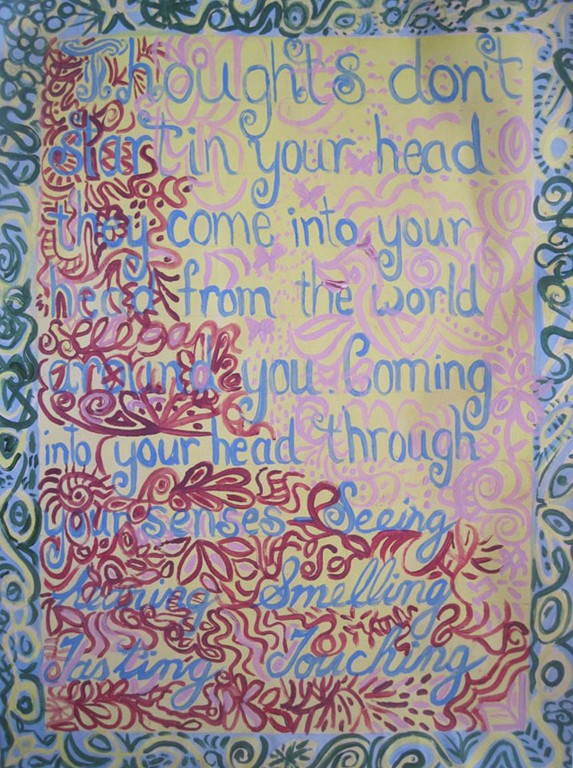 Thoughts don't
start in your head
they come into your
head from the world
around you. Coming
into your head through
your senses - Seeing
Hearing Smelling
Tasting Touching